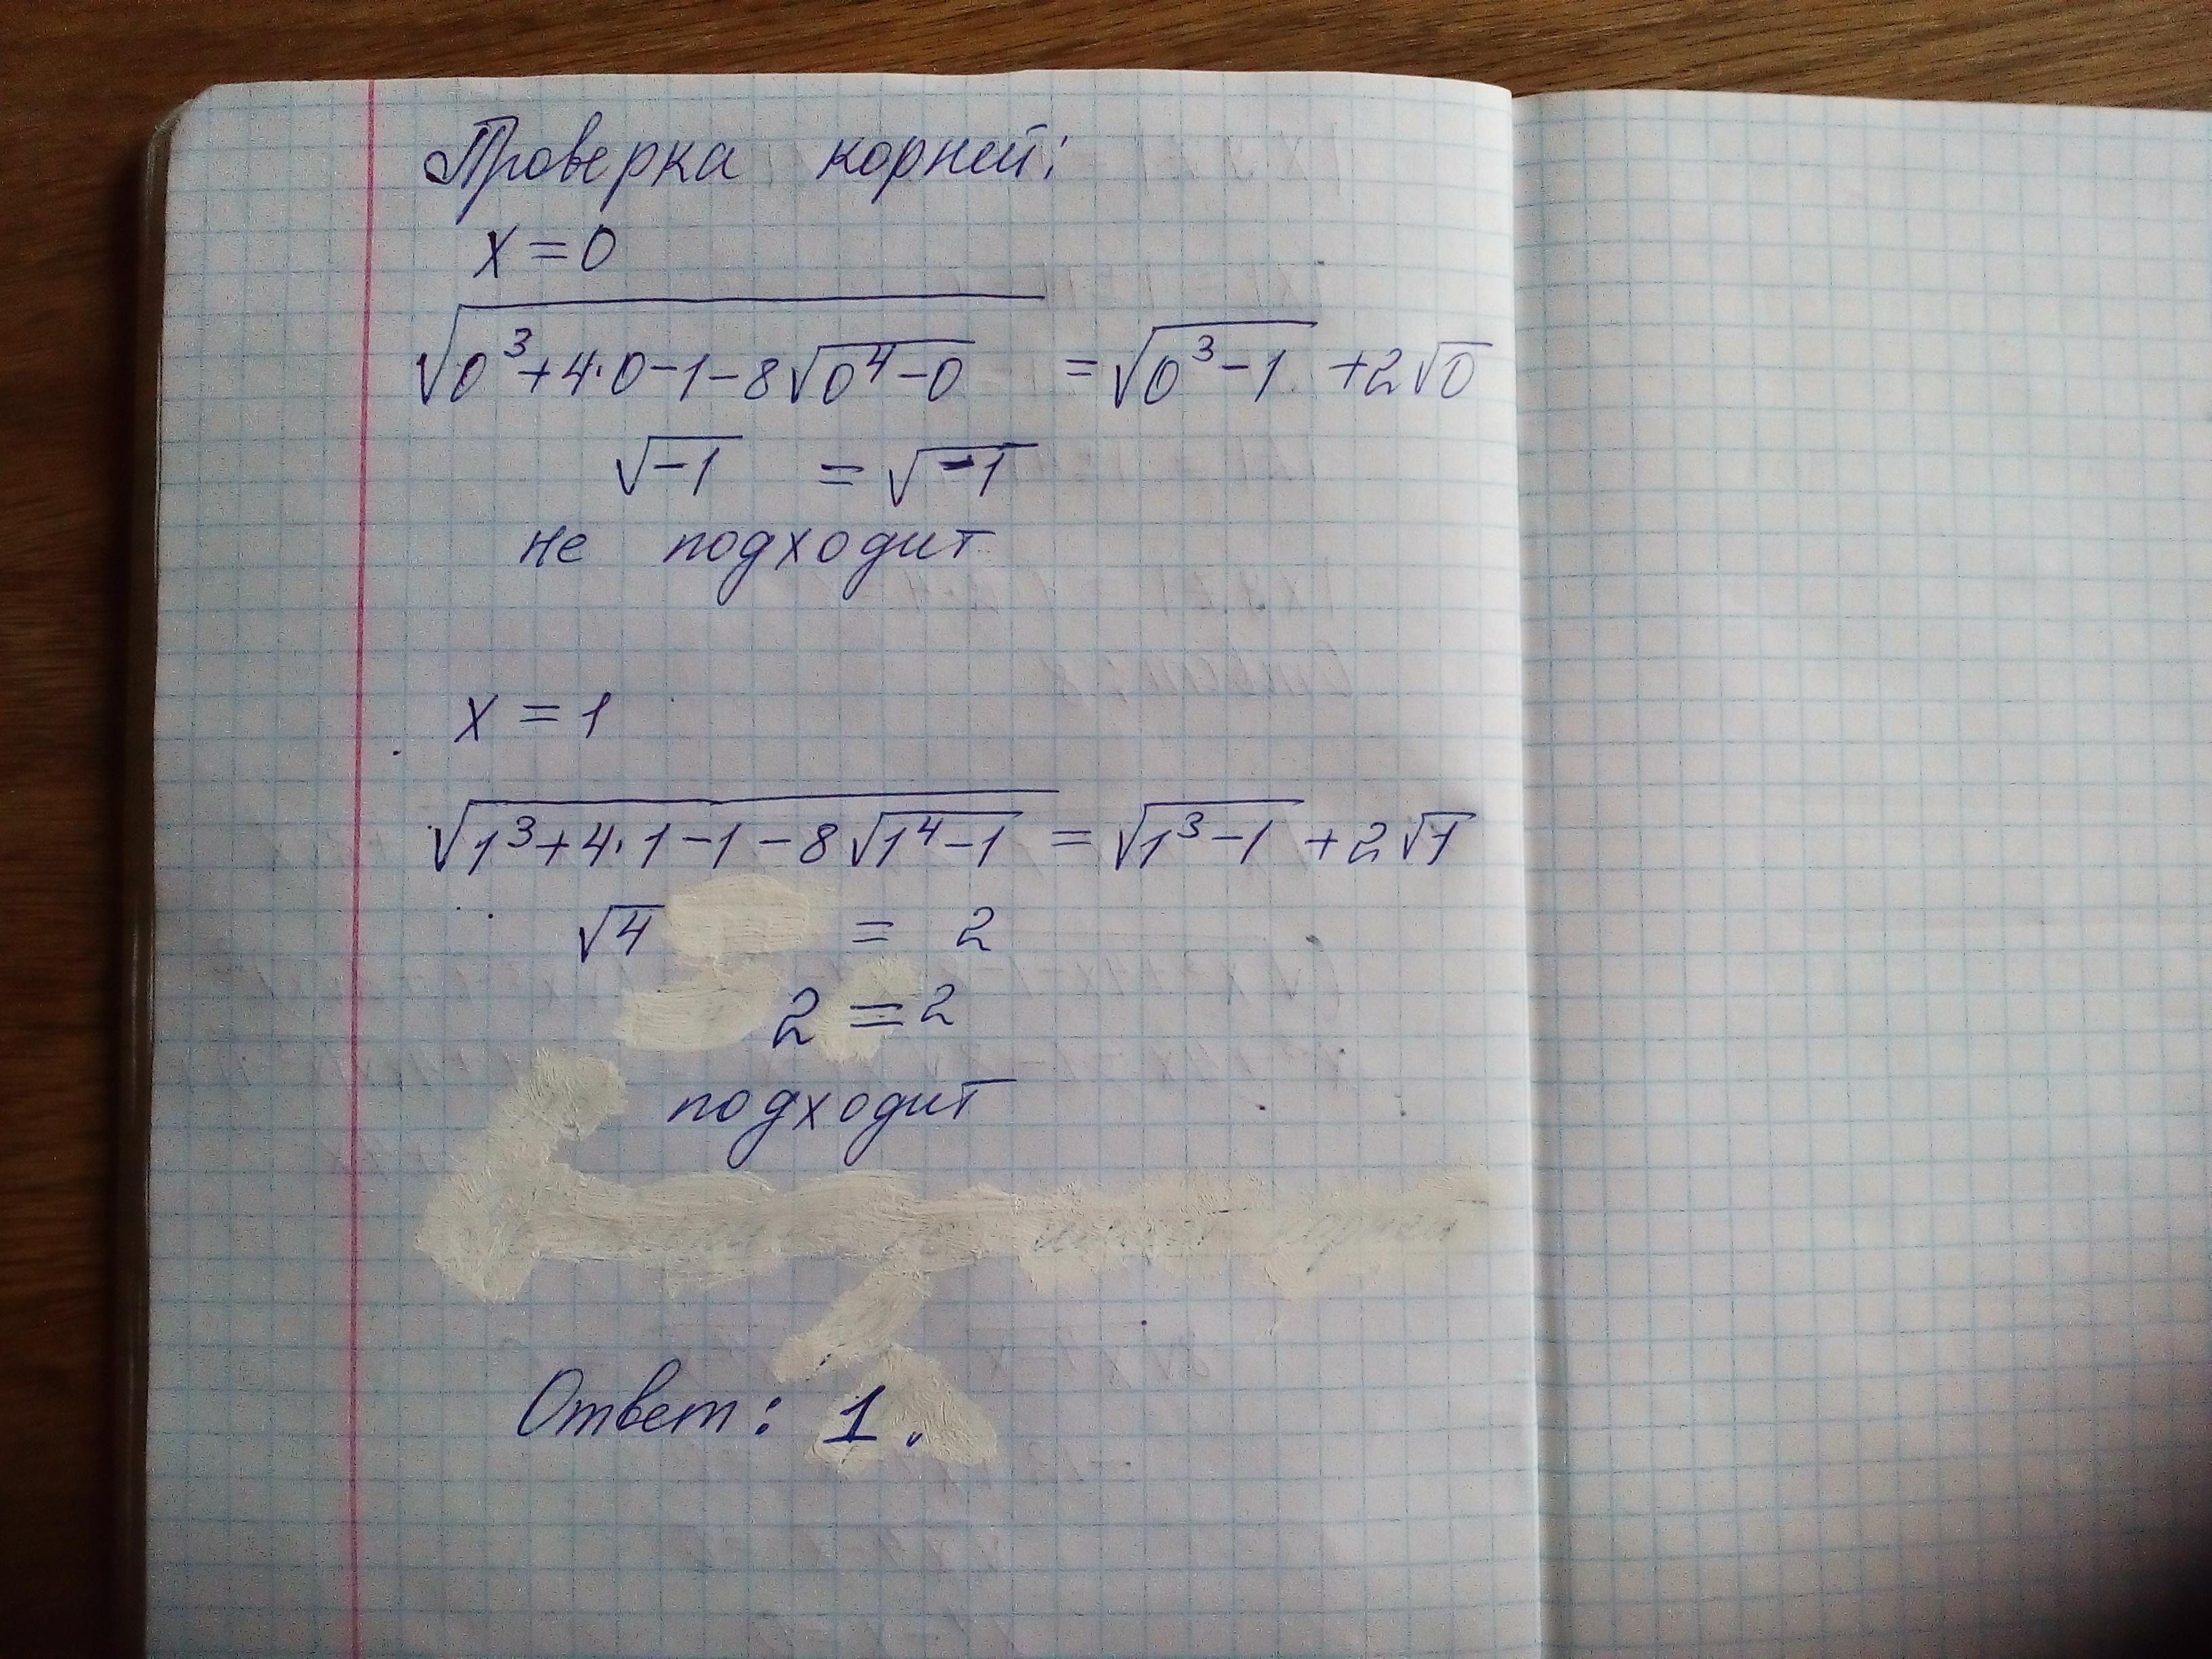 Проверка корней:
x = 0
√(0³+4·0-1-8√(0⁴-0)) = √(0³-1) + 2√0
√-1 = √-1
не подходит
x = 1
√(1³+4·1-1-8√(1⁴-1)) = √(1³-1) + 2√1
√4 = 2
2 = 2
подходит
Ответ: 1.